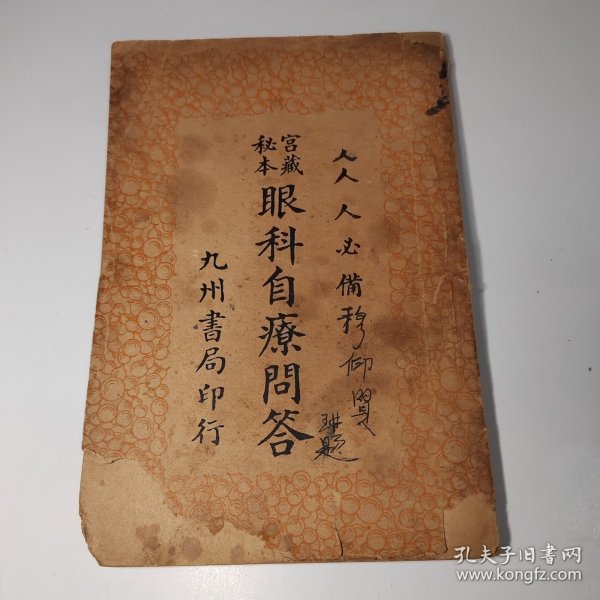 人人人必備穆仰賢
琳題
宮藏
秘本
眼科自療問答
九州書局印行
孔夫子旧书网
www.kongfz.com